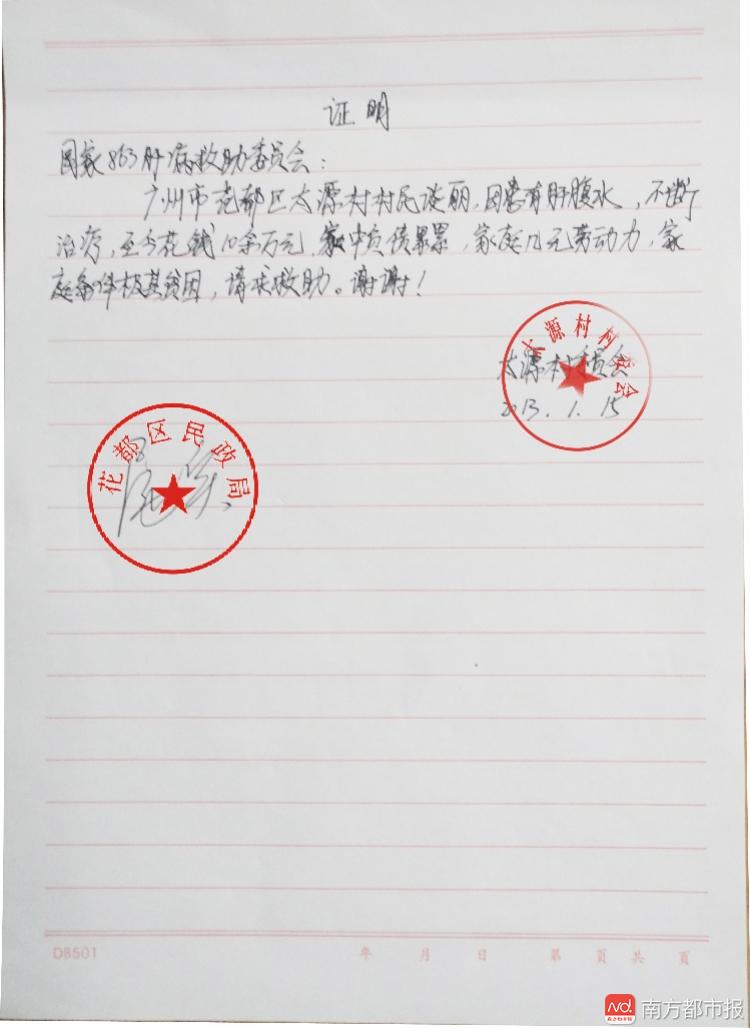 证明
国家863肝病救助委员会：
广州市花都区太源村村民谈丽，因患有肝腹水，不断
治疗，至今花钱10余万元，家中负债累累，家庭几无劳动力，家
庭条件极其贫困，请求救助。谢谢！
太源村村委会
太源村委会
2013.1.15
花都区民政局
D8501 年 月 日 第 页 共 页
南方都市报